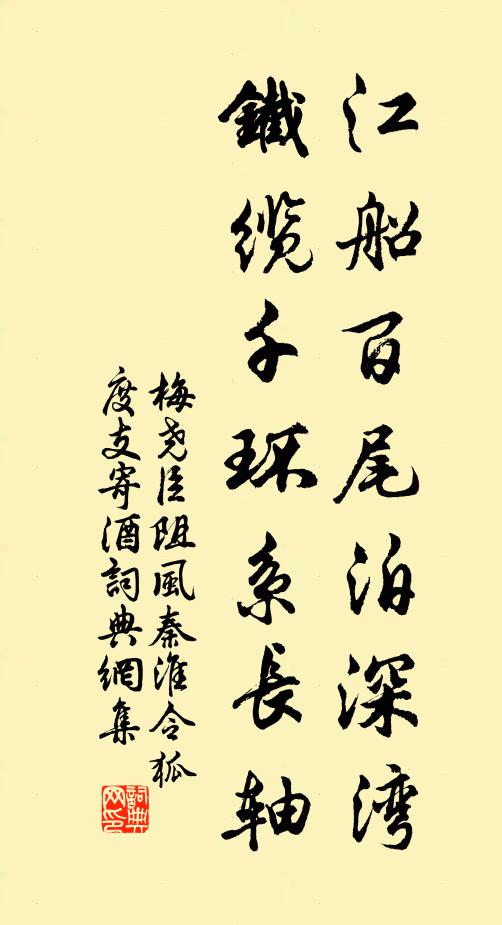 江船百尾泊深湾
鐵缆千环系長轴
梅尧臣阻風秦淮令狐
度支寄酒詞典網集
詞典网印